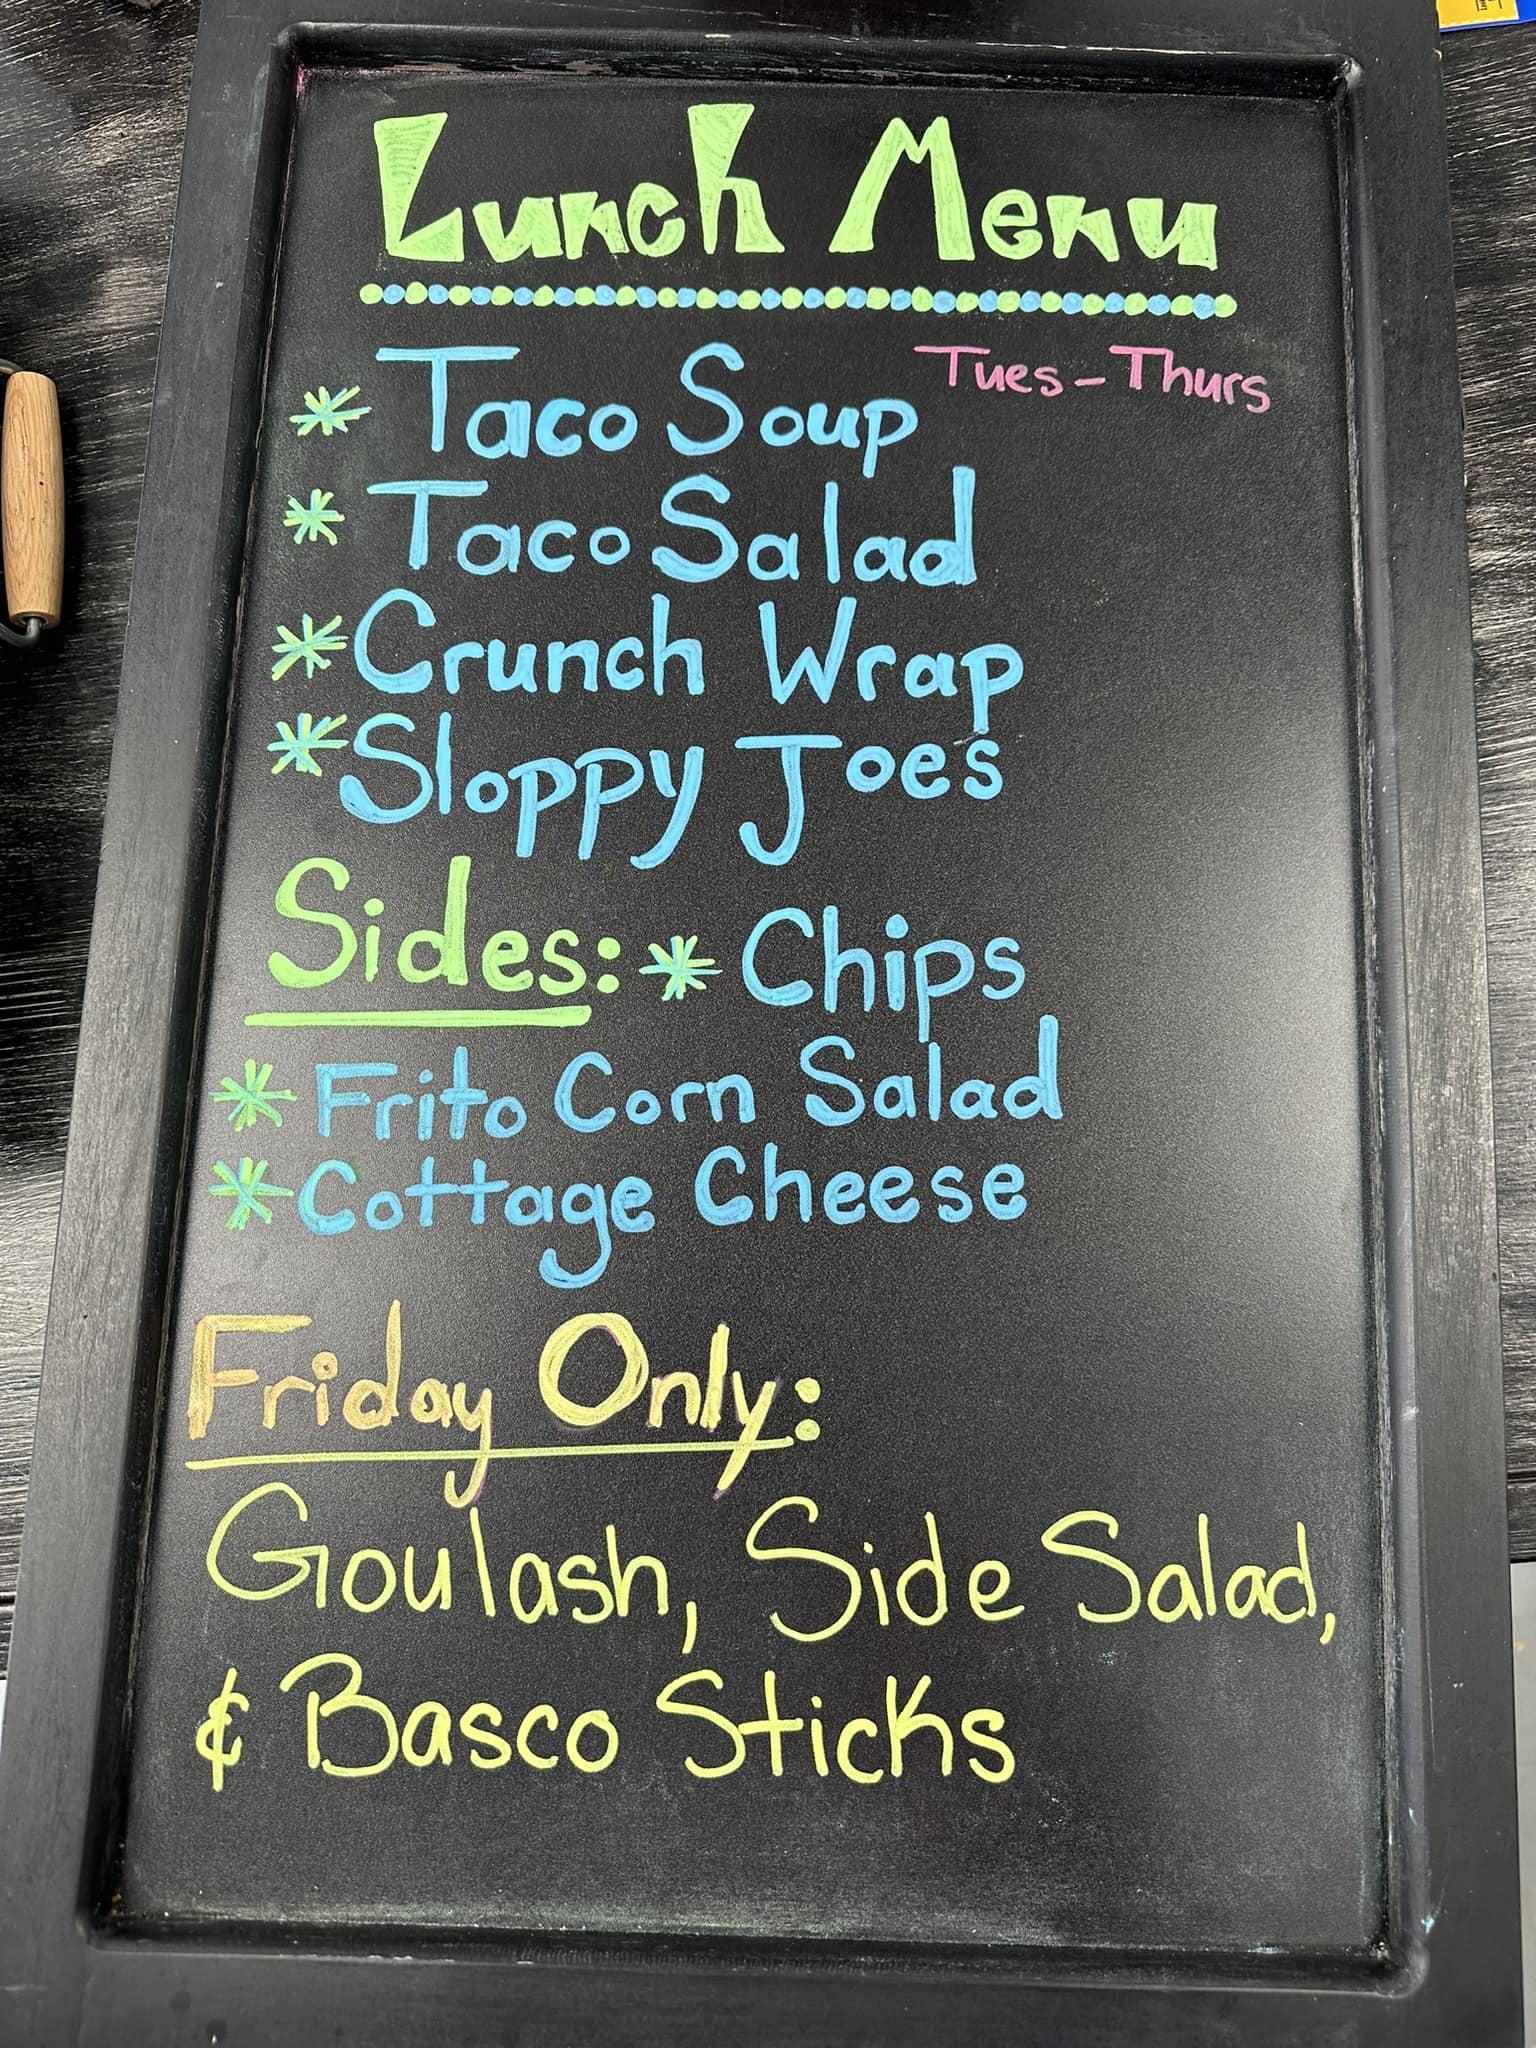 Lunch Menu
Tues-Thurs
* Taco Soup
* Taco Salad
* Crunch Wrap
* Sloppy Joes
Sides: * Chips
* Frito Corn Salad
* Cottage Cheese
Friday Only:
Goulash, Side Salad,
& Basco Sticks